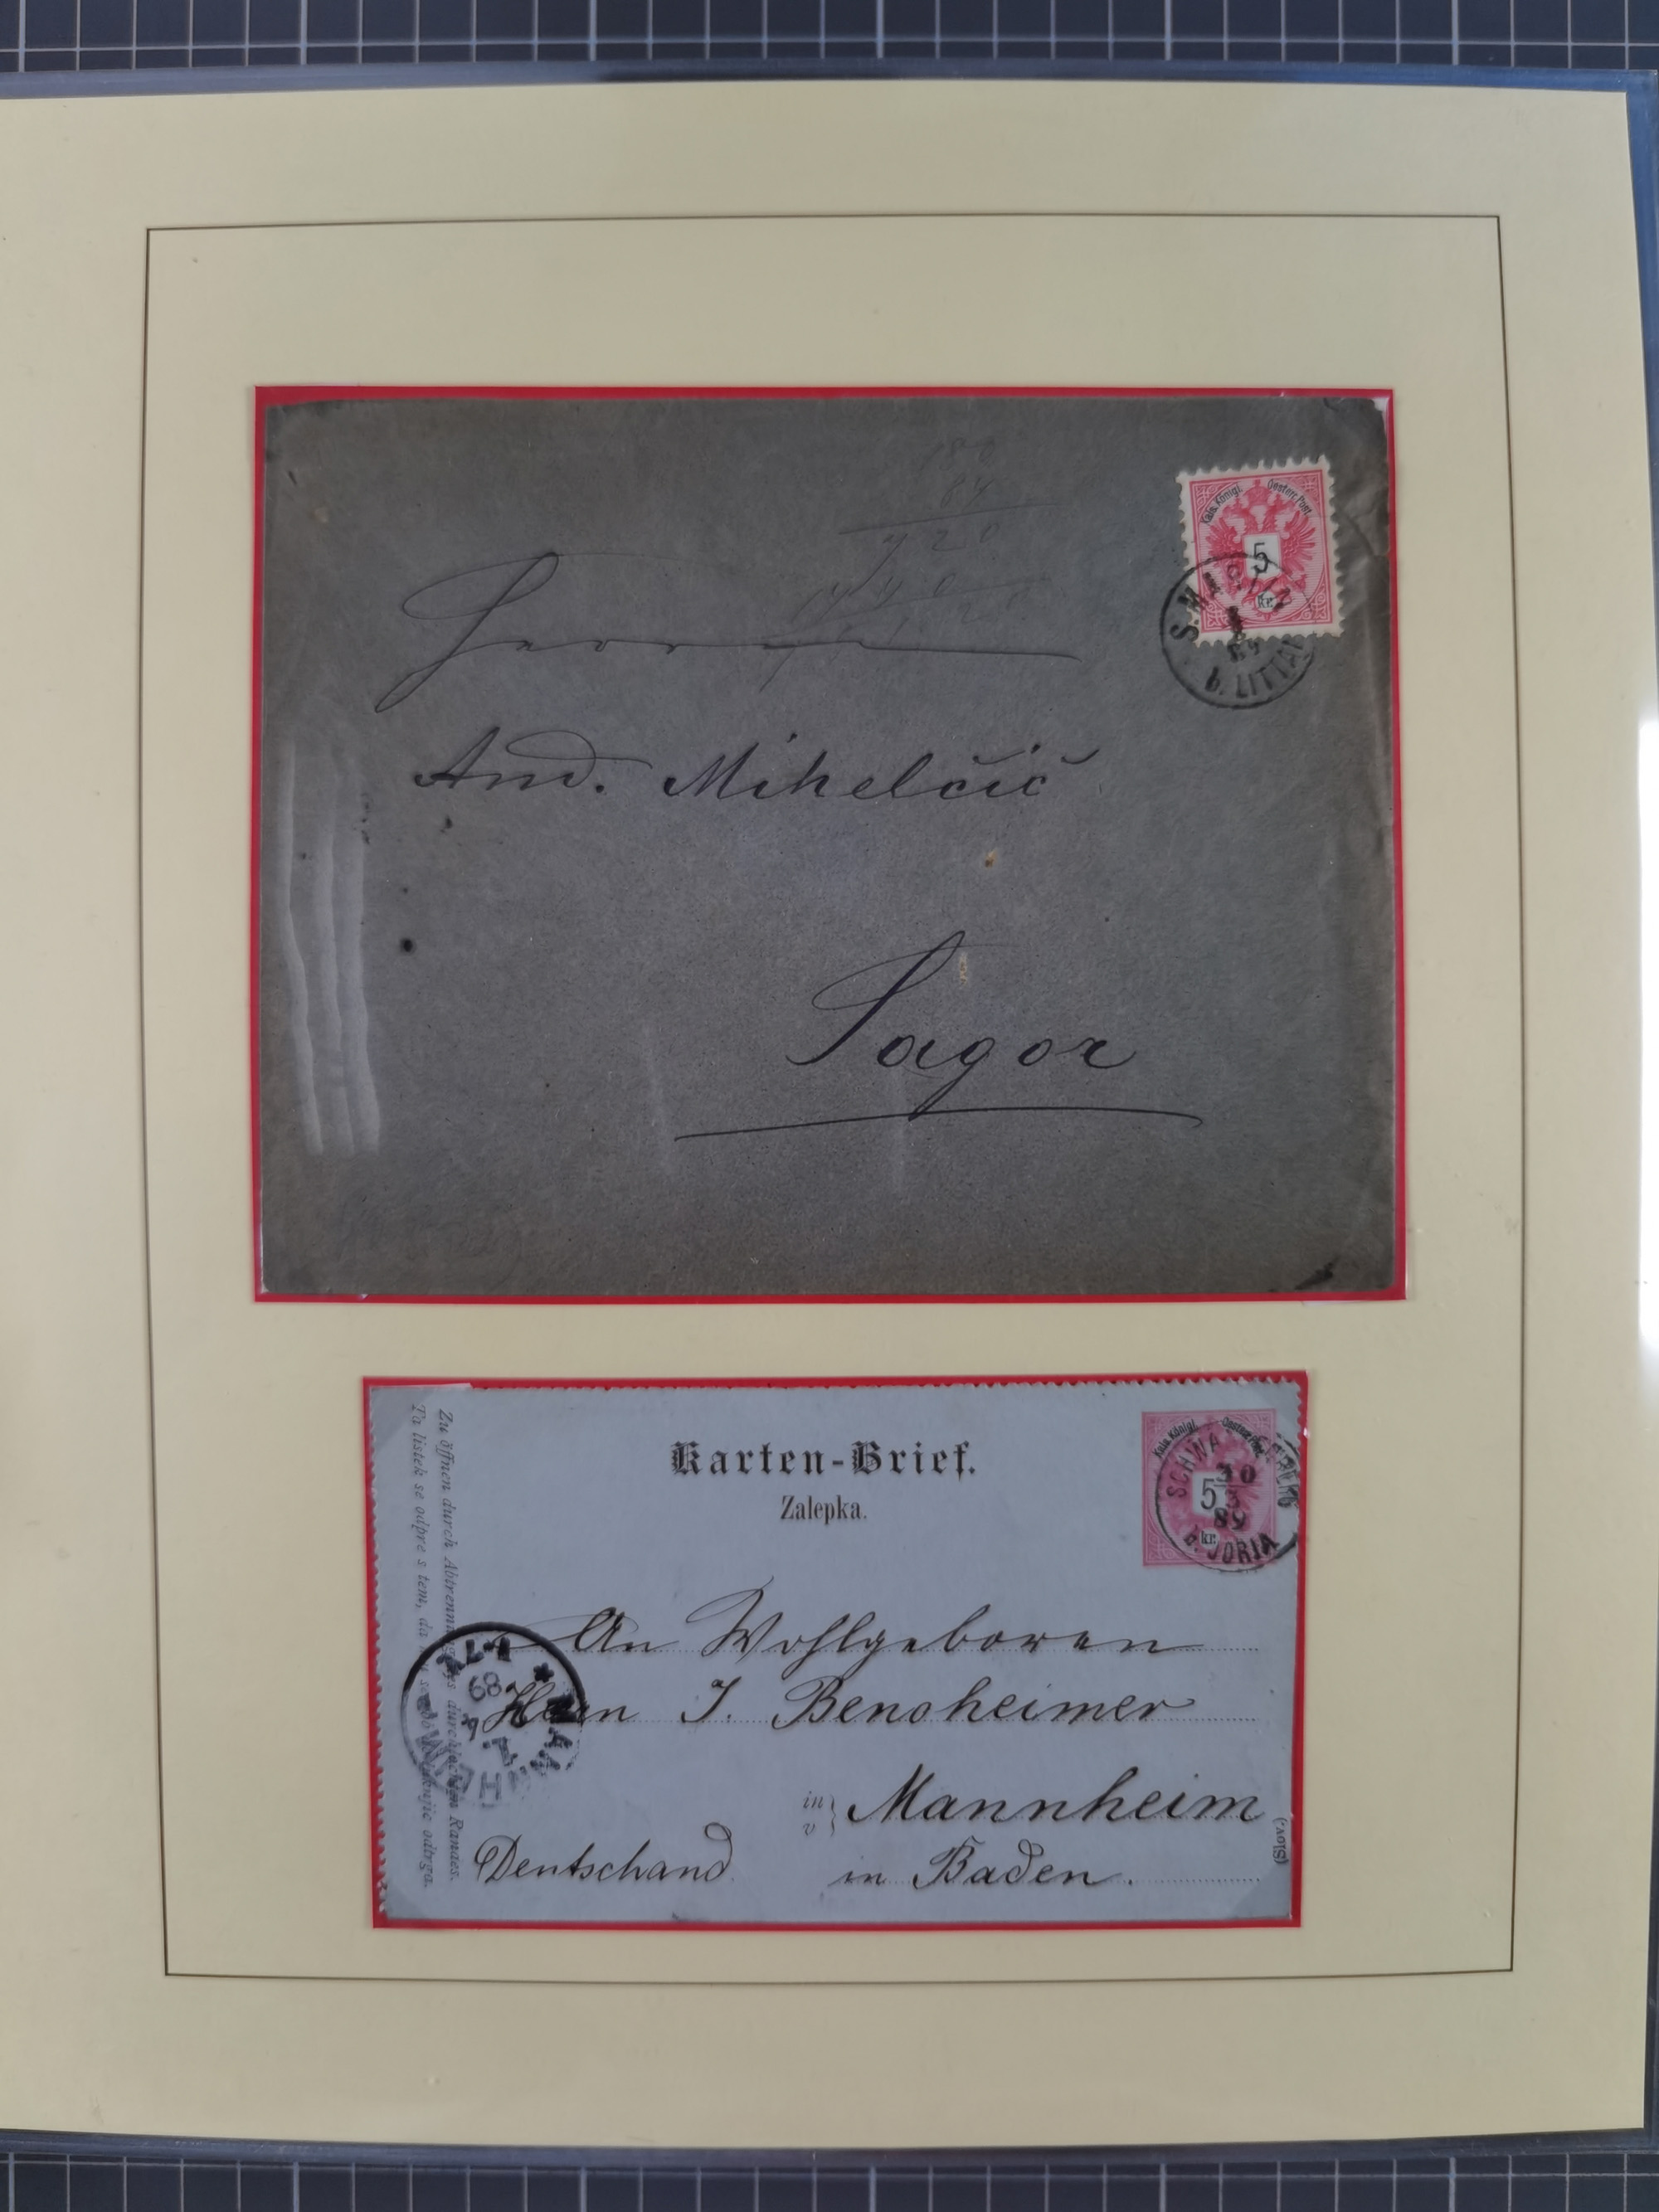 Kais. Königl. Oesterr. Post.
5
kr.
S. MARTIN
b. LITTAI
And. Mihelčič
Sagor
Karten-Brief.
Zalepka.
Kais. Königl. Oesterr. Post.
5
kr.
30
3
89
b. JDRIA
An Wohlgeboren
Herrn J. Bensheimer
in
v
Mannheim
Deutschand
in Baden.
(Slov.)
Zu öffnen durch Abtrennung des durchlochten Randes.
Ta listek se odpre s tem, da
odtrga.
MANNHEIM
89